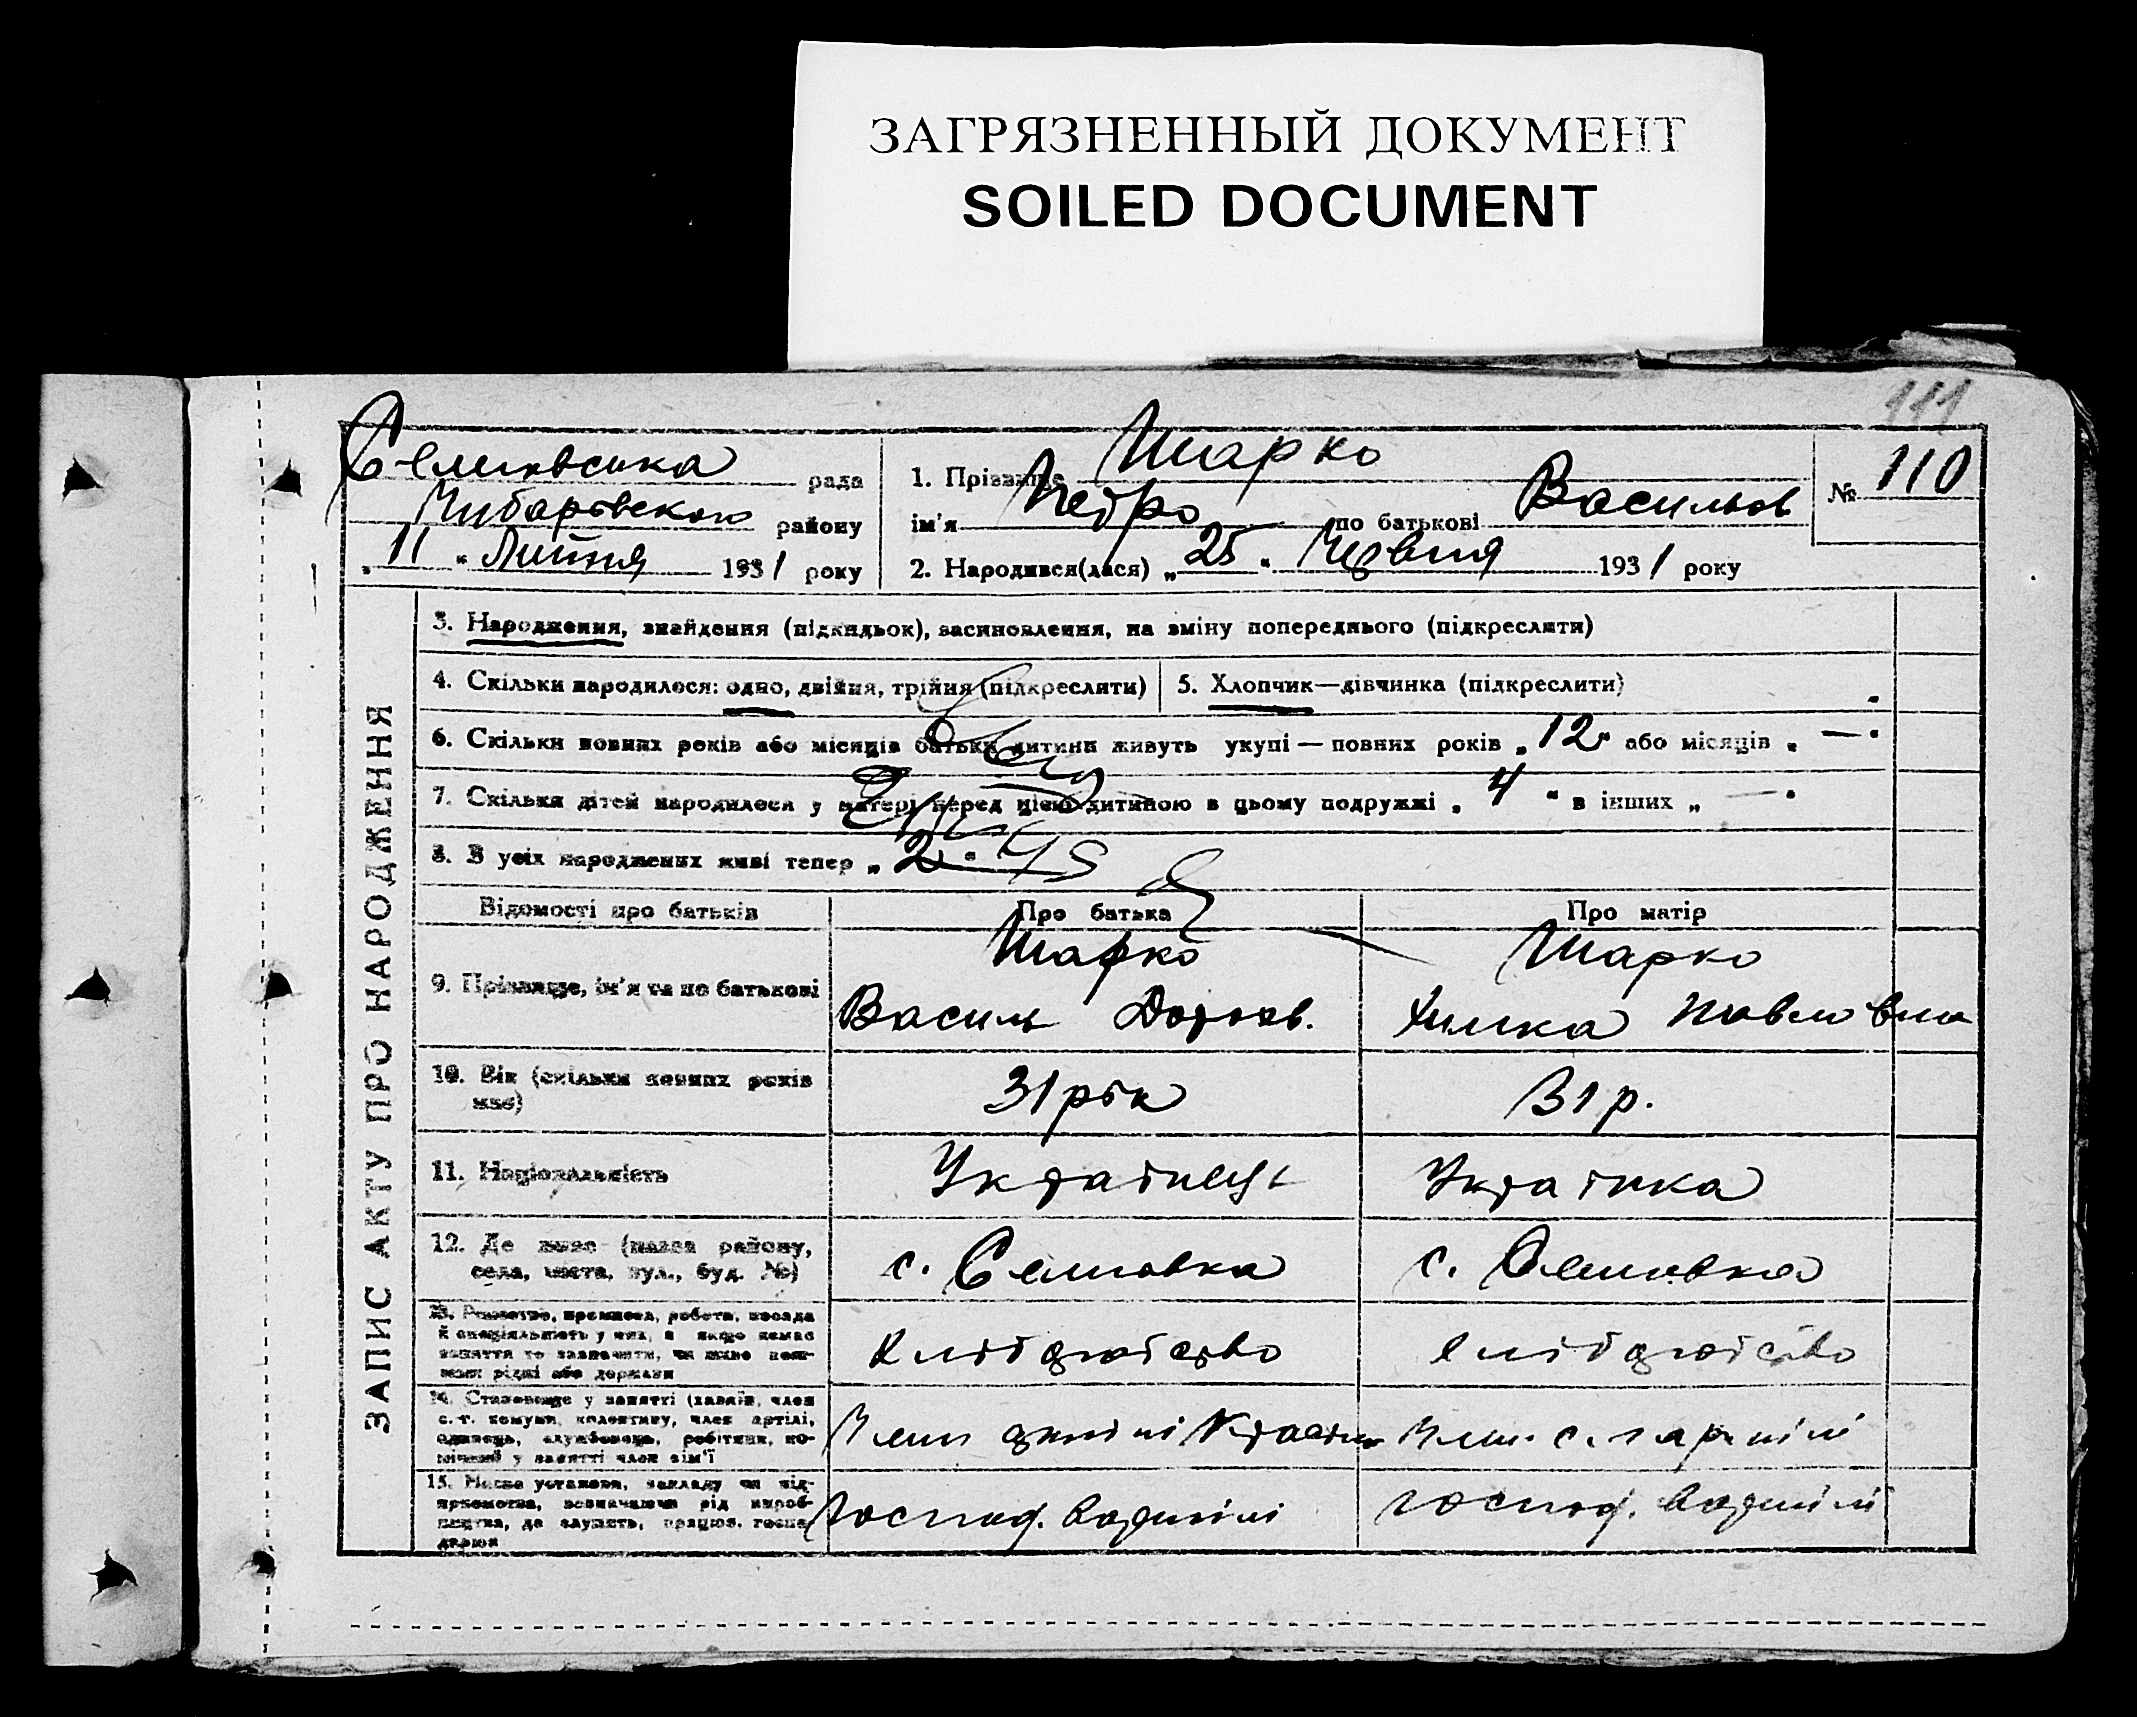 ЗАГРЯЗНЕННЫЙ ДОКУМЕНТ
SOILED DOCUMENT
111
Семнівська рада
Чубарівського району
„ 11 “ Липня 1931 року
1. Прізвище Шарко
ім'я Петро по батькові Васильов
2. Народився(лася) „ 25 “ Червня 1931 року
№ 110
ЗАПИС АКТУ ПРО НАРОДЖЕННЯ
3. Народження, знайдення (підкидьок), засиновлення, на зміну попереднього (підкреслити)
4. Скільки народилося: одно, двійня, трійня (підкреслити)
5. Хлопчик—дівчинка (підкреслити)
6. Скільки повних років або місяців батьки дитини живуть укупі — повних років „ 12 “ або місяців „ — “
7. Скільки дітей народилося у матері перед цією дитиною в цьому подружжі „ 4 “ в інших „ — “
8. З усіх народжених живі тепер „ 2 “
Відомості про батьків
Про батька
Про матір
9. Прізвище, ім'я та по батькові
Шарко
Василь
Шарко
Химка Павлівна
10. Вік (скільки повних років має)
31 рік
31 р.
11. Національність
Українець
Українка
12. Де живе (назва району,
села, міста, вул., буд. №)
с. Семновка
с. Семновка
13. Ремество, промисел, робота, посада
й спеціяльність у них, а якщо немає
заняття то зазначити, чи живе
рідні або держави
Хліборобство
Хліборобство
14. Становище у занятті (хазяїн, член
с.-г. комуни, колективу, член артілі,
одинець, службовець, робітник, по-
у занятті член сім'ї
Член артілі
Член с. г. артілі
15. Назва установи, закладу чи під-
приємства, зазначаючи рід вироб-
ництва, де служить, працює, госпо-
дарює
Господ. в артілі
Господ. в артілі